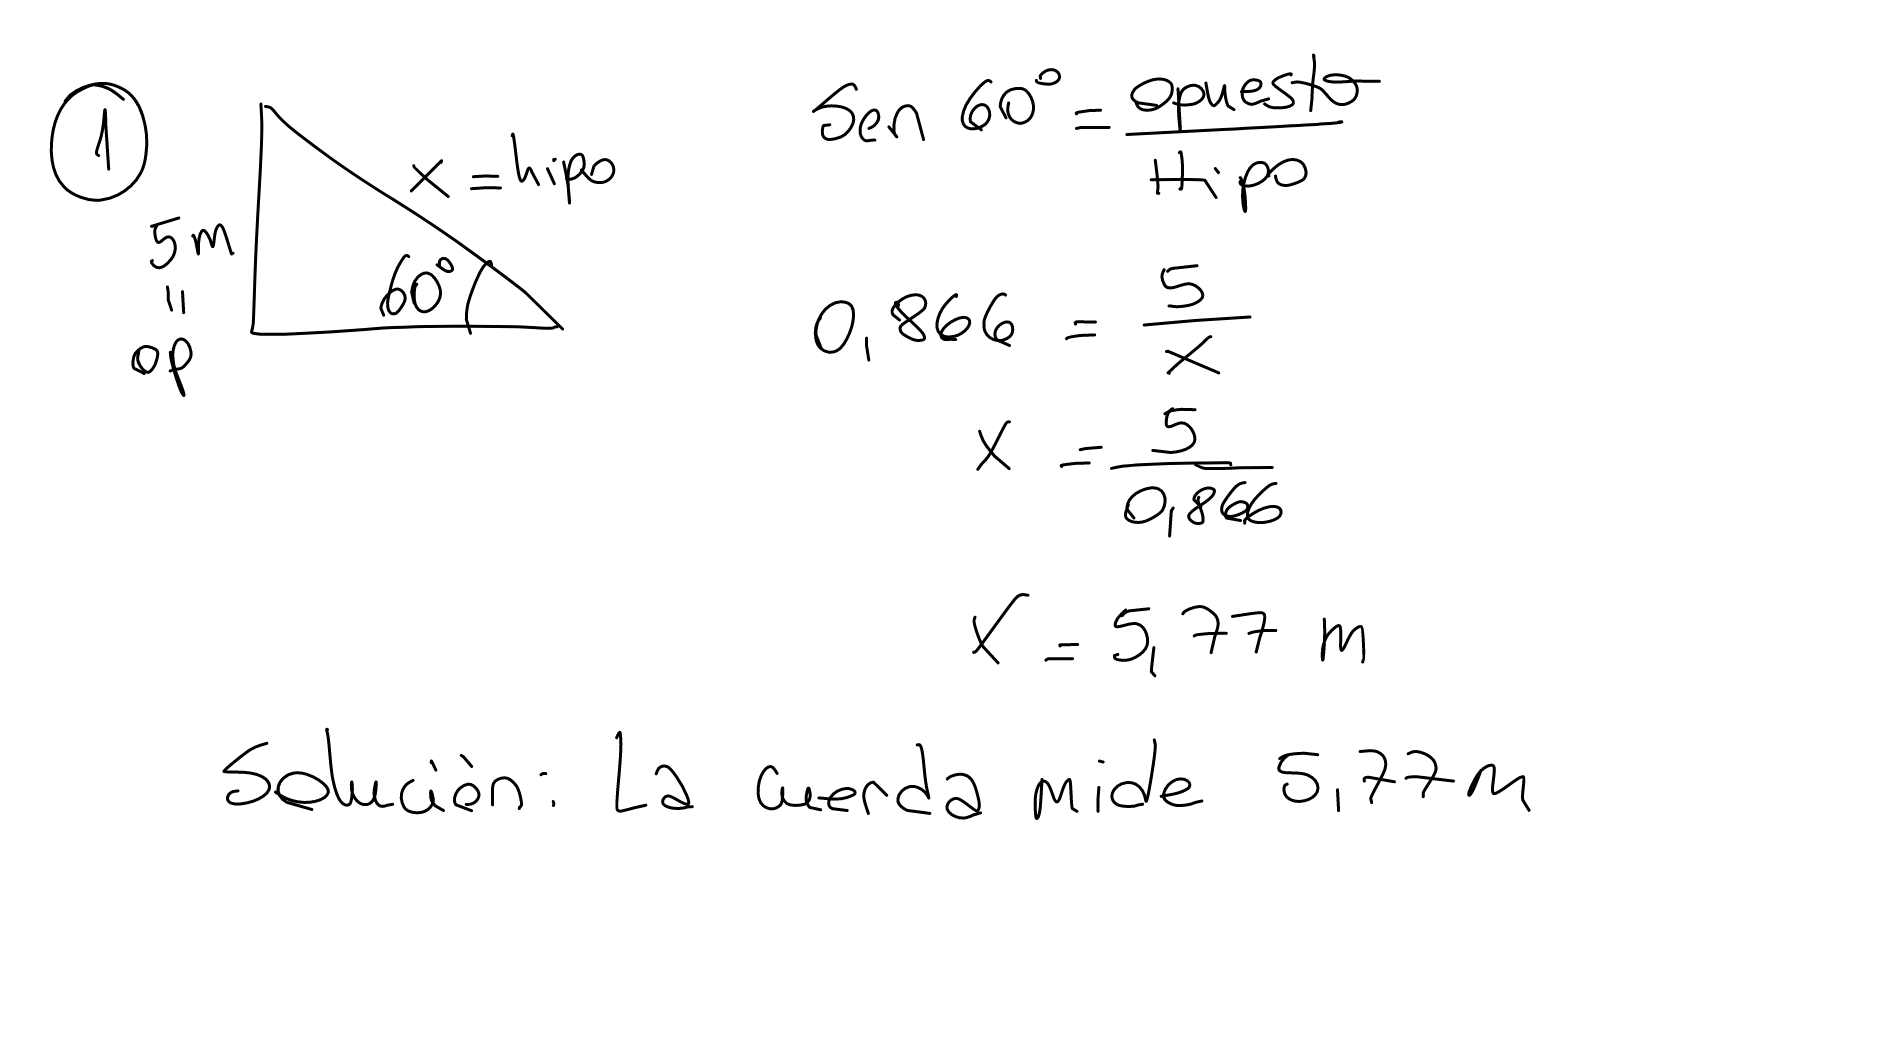 1
5m
=
op
x = hipo
60°
Sen 60° = opuesto
Hipo
0,866 = 5
x
x = 5
0,866
x = 5,77 m
Solución: La cuerda mide 5,77m